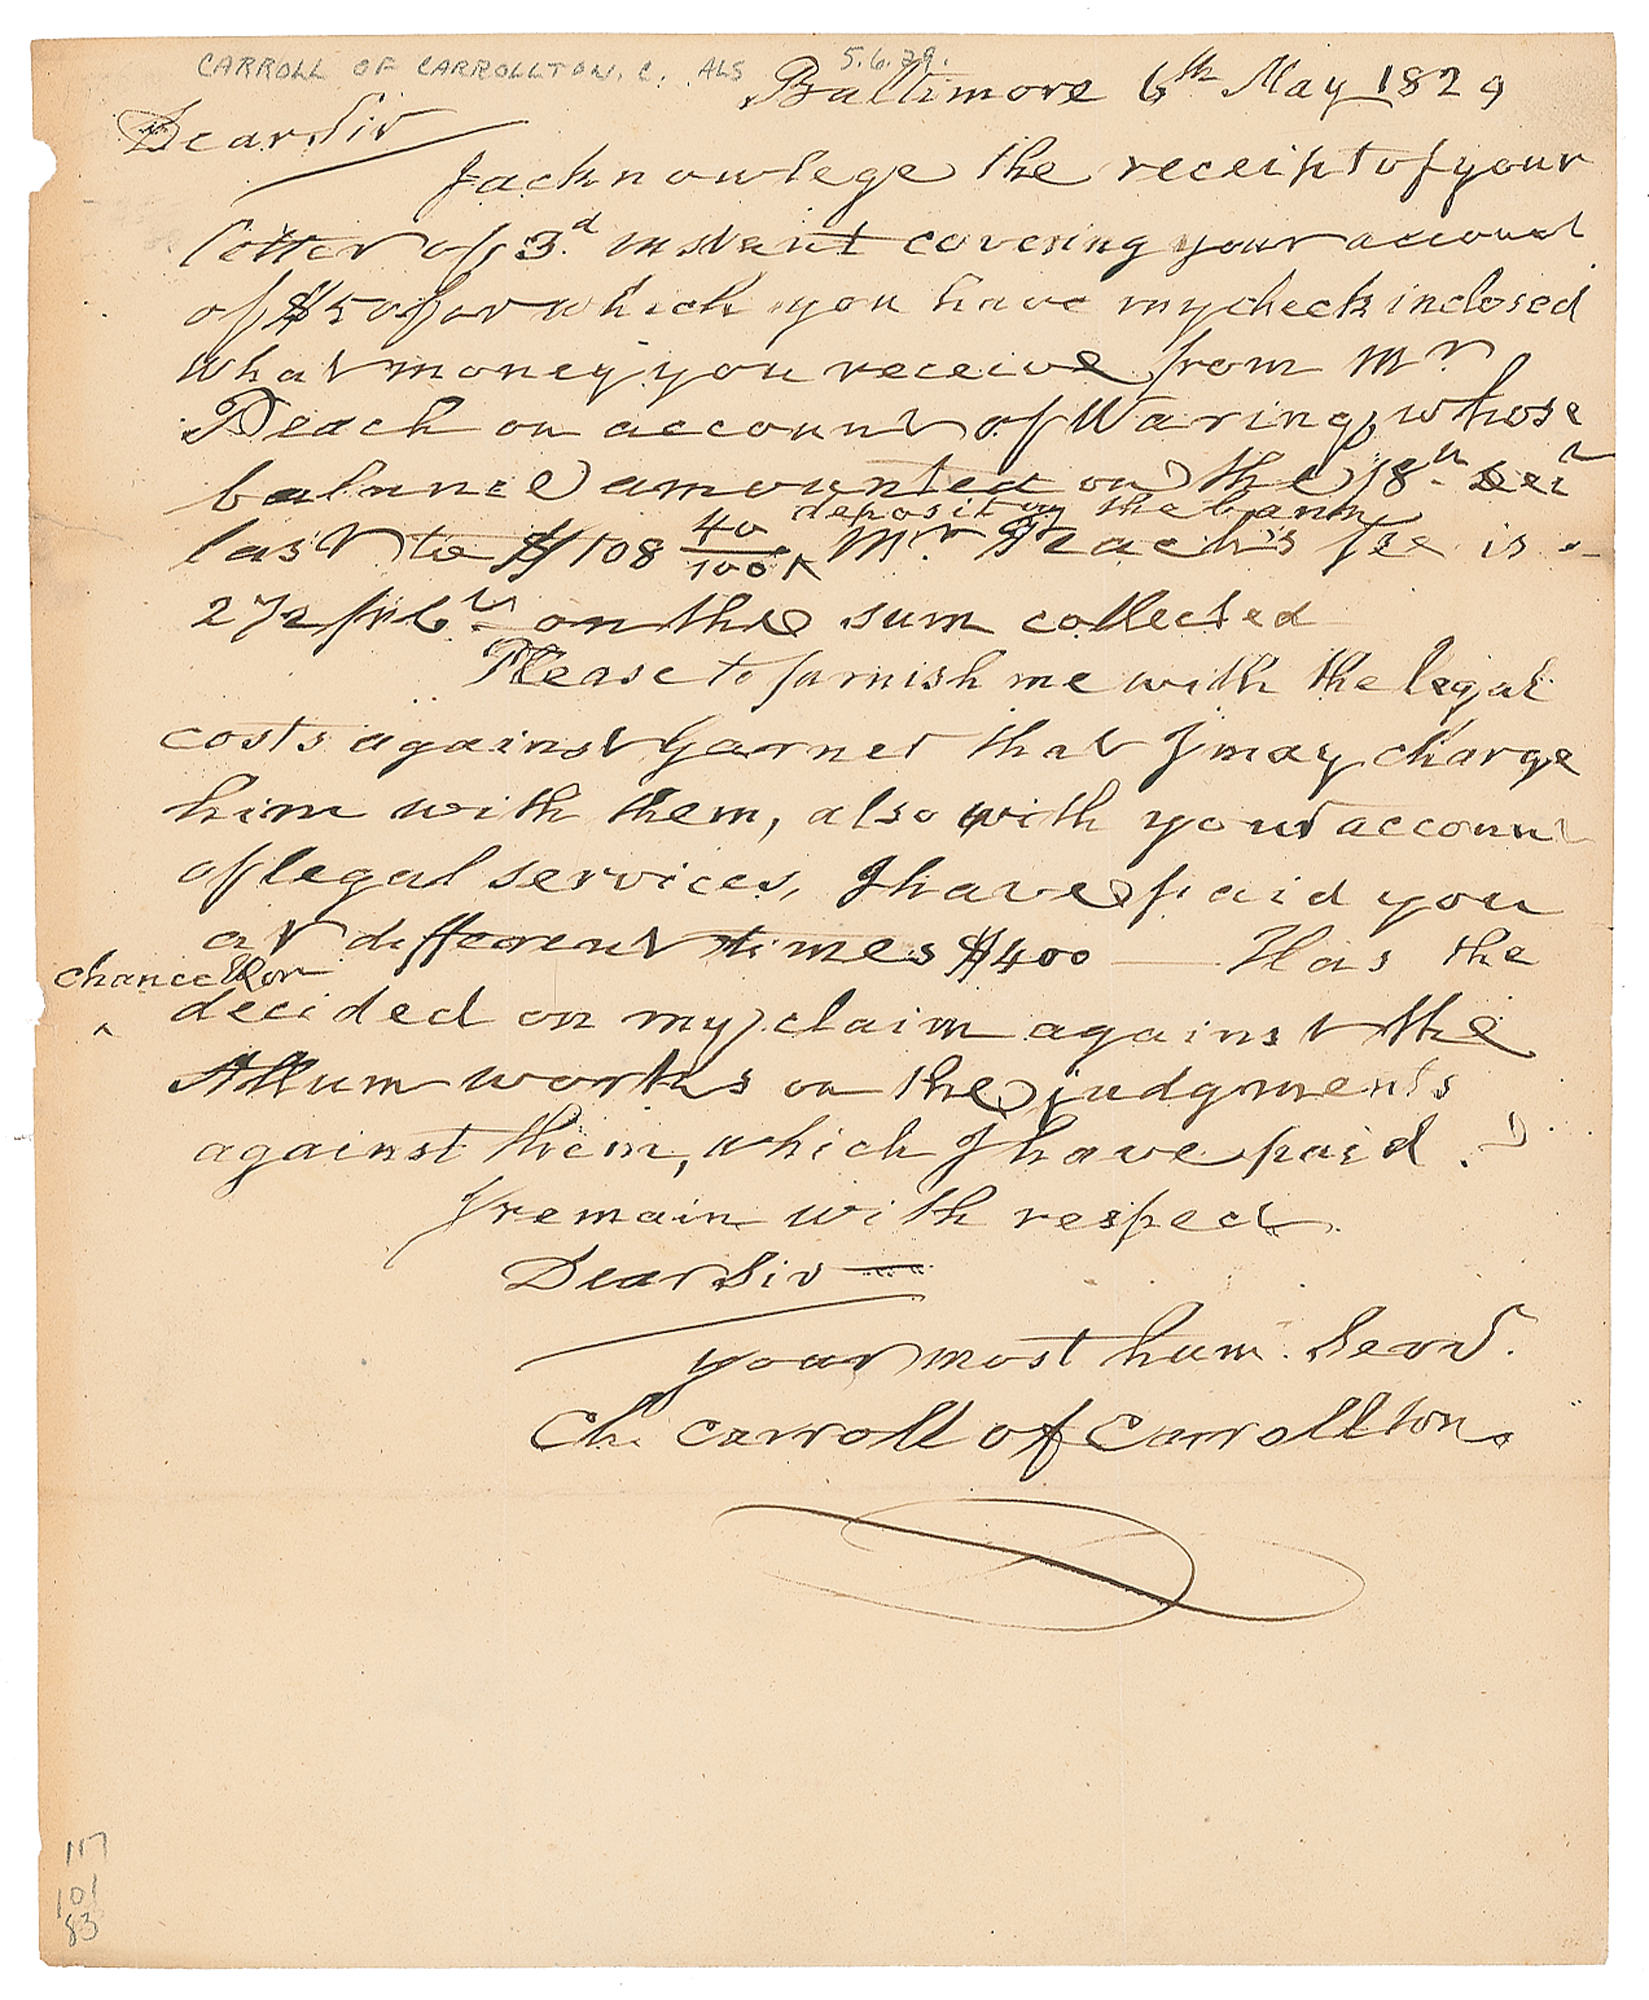 CARROLL OF CARROLLTON, C. ALS 5.6.29.
Baltimore 6th May 1829
Dear Sir
I acknowlege the receipt of your
letter of 3.d instant covering your account
of $50 for which you have my check inclosed
what money you receive from Mr.
Peach on account of Waring, whose
balance amounted on the 18th Decr
deposit in the bank
last to $108 40/100 ^ Mr. Peach's fee is -
2 1/2 pr Ct. on the sum collected
Please to furnish me with the legal
costs against Garner that I may charge
him with them, also with your account
of legal services, I have paid you
at different times $400 — Has the
chancellor
^ decided on my claim against the
Allum works on the judgments
against them, which I have paid.
I remain with respect
Dear Sir
your most hum. Servt.
Ch. Carroll of Carrollton.
117
101
83